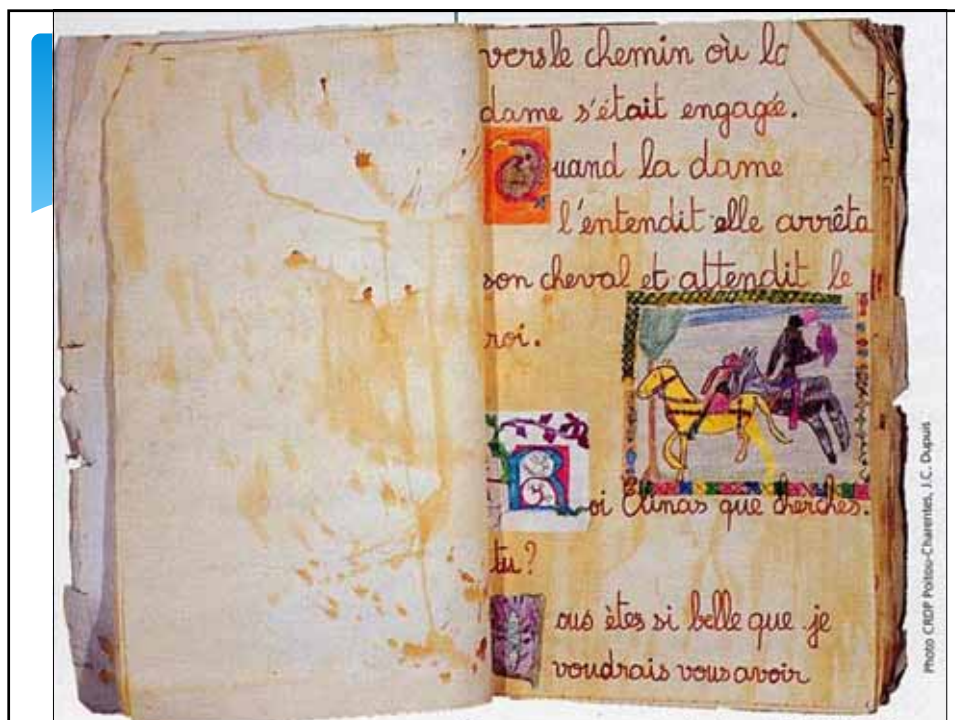 vers le chemin où la
dame s'était engagée.
Quand la dame
l'entendit elle arrêta
son cheval et attendit le
roi.
Roi Elinas que cherches-
tu?
Vous êtes si belle que je
voudrais vous avoir
Photo CRDP Poitou-Charentes, J.C. Dupuis